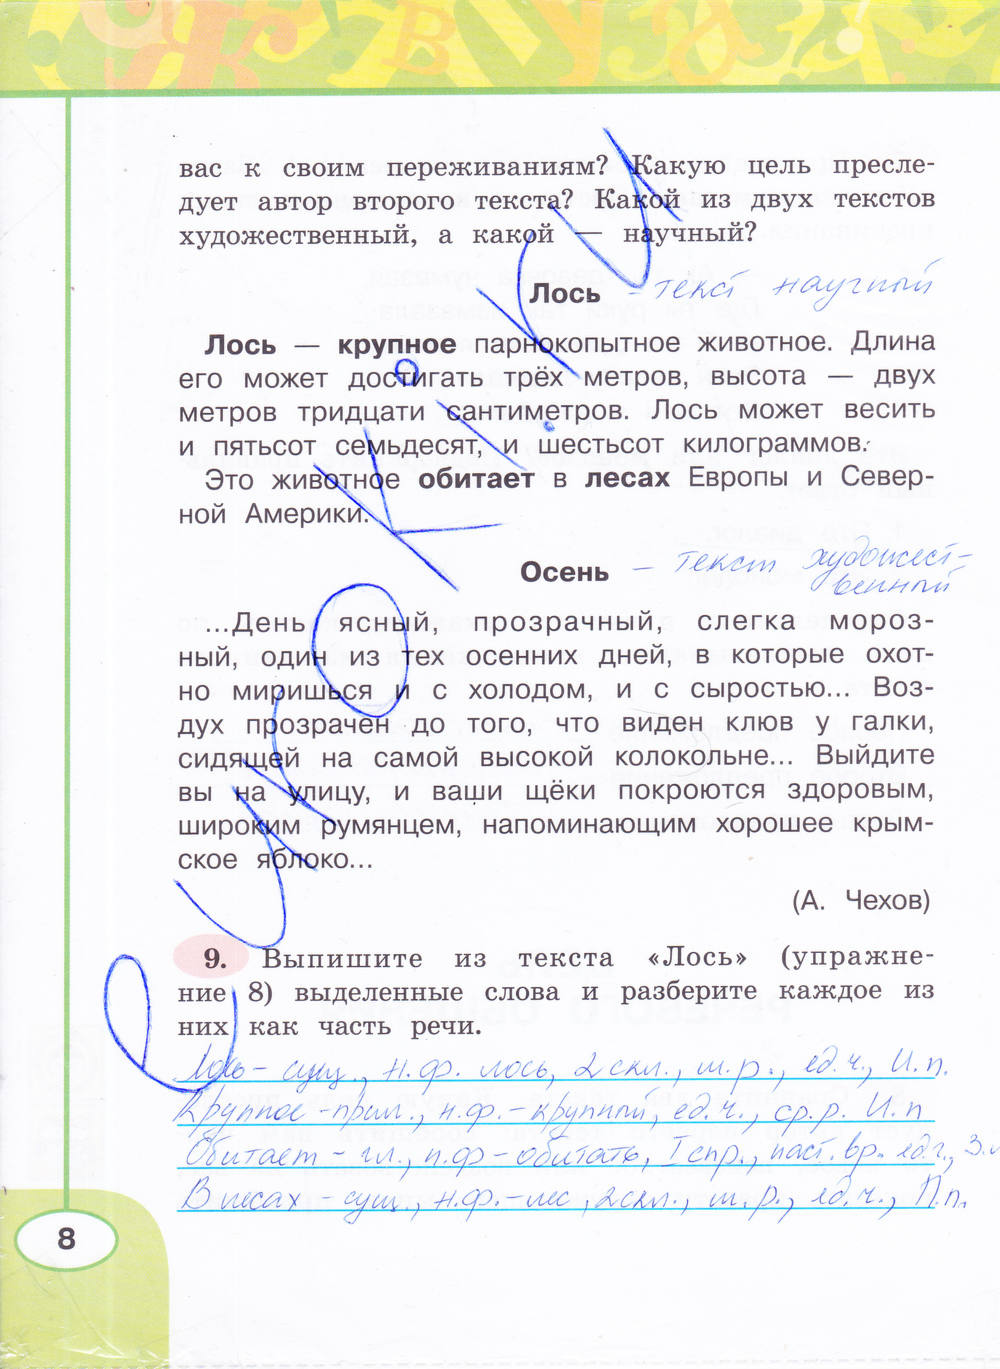 вас к своим переживаниям? Какую цель пресле-
дует автор второго текста? Какой из двух текстов
художественный, а какой — научный?
Лось - текст научный
Лось — крупное парнокопытное животное. Длина
его может достигать трёх метров, высота — двух
метров тридцати сантиметров. Лось может весить
и пятьсот семьдесят, и шестьсот килограммов.
Это животное обитает в лесах Европы и Север-
ной Америки.
Осень - текст художест-
венный
...День ясный, прозрачный, слегка мороз-
ный, один из тех осенних дней, в которые охот-
но миришься и с холодом, и с сыростью... Воз-
дух прозрачен до того, что виден клюв у галки,
сидящей на самой высокой колокольне... Выйдите
вы на улицу, и ваши щёки покроются здоровым,
широким румянцем, напоминающим хорошее крым-
ское яблоко...
(А. Чехов)
9. Выпишите из текста «Лось» (упражне-
ние 8) выделенные слова и разберите каждое из
них как часть речи.
Лось - сущ., н.ф. лось, 2 скл., м.р., ед.ч., И.п.
Крупное - прил., н.ф. - крупный, ед.ч., ср.р. И.п
Обитает - гл., н.ф - обитать, I спр., наст.вр. ед.ч., 3.л
В лесах - сущ., н.ф. - лес, 2 скл., м.р., ед.ч., П.п.
8